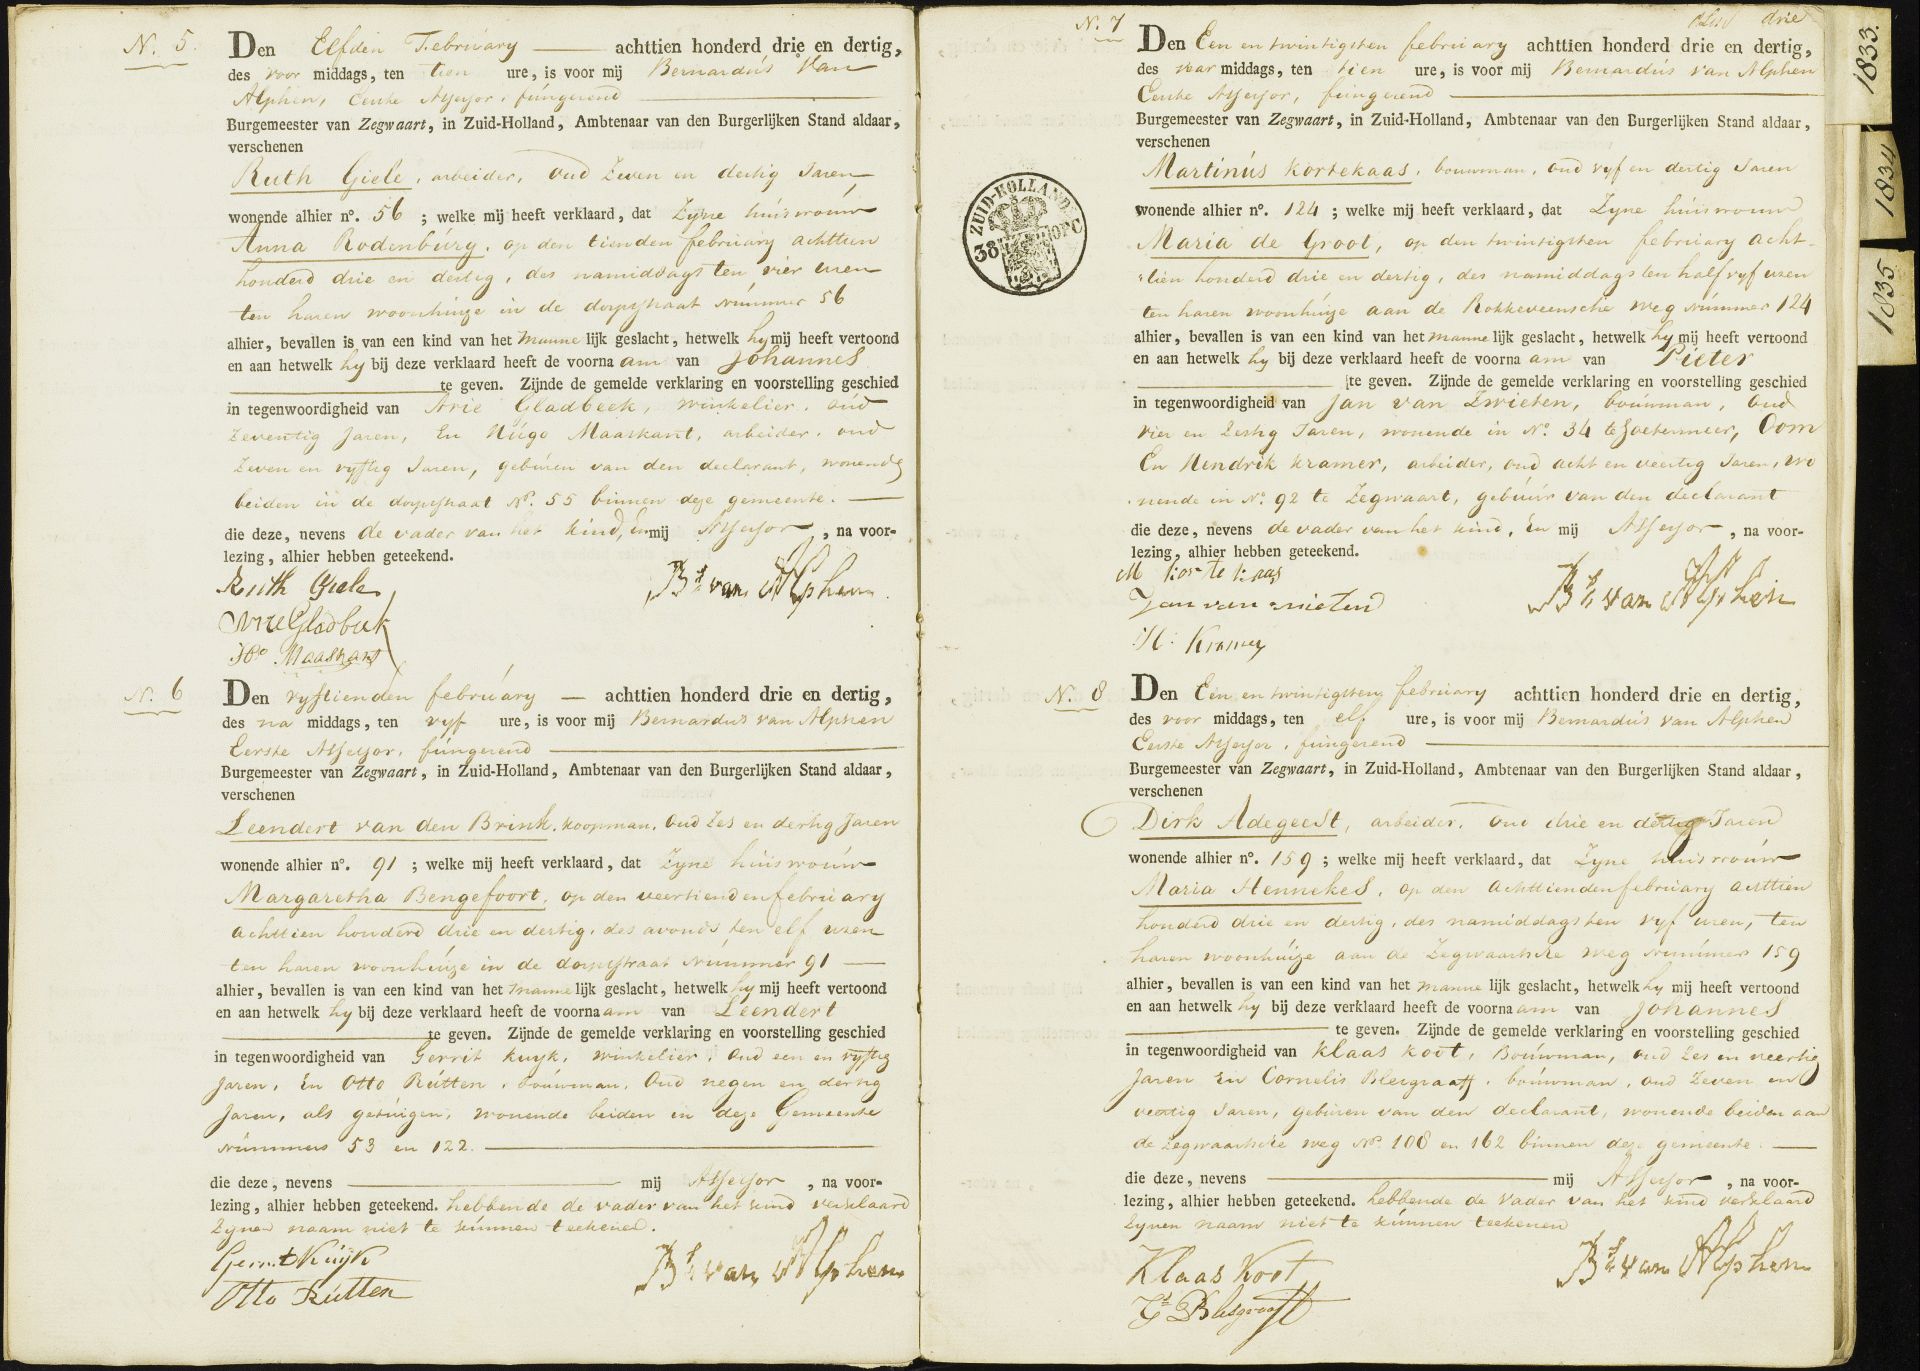 N. 5.
Den Elfden February achttien honderd drie en dertig,
des voor middags, ten tien ure, is voor mij Bernardus Van
Alphen, Eerste Assessor, fungerend
Burgemeester van Zegwaart, in Zuid-Holland, Ambtenaar van den Burgerlijken Stand aldaar,
verschenen
Ruth Giele, arbeider, oud Zeven en dertig Jaren
wonende alhier no. 56 ; welke mij heeft verklaard, dat Zyne huisvrouw
Anna Rodenburg, op den tienden february achttien
honderd drie en dertig, des namiddags ten vier uren
ten haren woonhuize in de dorpstraat nummer 56
alhier, bevallen is van een kind van het manne lijk geslacht, hetwelk hy mij heeft vertoond
en aan hetwelk hy bij deze verklaard heeft de voorna am van Johannes
te geven. Zijnde de gemelde verklaring en voorstelling geschied
in tegenwoordigheid van Arie Gladbeek, winkelier, oud
Zeventig Jaren, En Hugo Maaskant, arbeider, oud
Zeven en vyftig Jaren, geburen van den declarant, wonende
beiden in de dorpstraat No. 55 binnen deze gemeente.
die deze, nevens de vader van het kind, en mij Assessor, na voor-
lezing, alhier hebben geteekend.
Ruth Giele
Bs van Alphen.
Arie Gladbeek
Ho Maaskant
N. 6
Den vyftienden february achttien honderd drie en dertig,
des na middags, ten vyf ure, is voor mij Bernardus van Alphen
Eerste Assessor, fungerend
Burgemeester van Zegwaart, in Zuid-Holland, Ambtenaar van den Burgerlijken Stand aldaar,
verschenen
Leendert van den Brink, koopman, oud Zes en dertig Jaren
wonende alhier no. 91 ; welke mij heeft verklaard, dat Zyne huisvrouw
Margaretha Bengefoort, op den veertienden february
achttien honderd drie en dertig, des avonds ten elf uren
ten haren woonhuize in de dorpstraat nummer 91
alhier, bevallen is van een kind van het manne lijk geslacht, hetwelk hy mij heeft vertoond
en aan hetwelk hy bij deze verklaard heeft de voorna am van Leendert
te geven. Zijnde de gemelde verklaring en voorstelling geschied
in tegenwoordigheid van Gerrit Kuyk, winkelier, oud een en vyftig
Jaren, En Otto Rutten, bouwman, oud negen en dertig
Jaren, als getuigen, wonende beiden in deze Gemeente
nummers 53 en 122.
die deze, nevens mij Assessor, na voor-
lezing, alhier hebben geteekend. hebbende de vader van het kind verklaard
Zynen naam niet te kunnen teekenen.
Gerrit Kuijk
Bs van Alphen
Otto Rutten
N. 7
drie
Den Een en twintigsten february achttien honderd drie en dertig,
des voor middags, ten tien ure, is voor mij Bernardus van Alphen
Eerste Assessor, fungerend
Burgemeester van Zegwaart, in Zuid-Holland, Ambtenaar van den Burgerlijken Stand aldaar,
verschenen
Martinus Kortekaas, bouwman, oud vyf en dertig Jaren
wonende alhier no. 124 ; welke mij heeft verklaard, dat Zyne huisvrouw
Maria de Groot, op den twintigsten february acht-
tien honderd drie en dertig, des namiddags ten half vyf uren
ten haren woonhuize aan de Rokkeveensche weg nummer 124
alhier, bevallen is van een kind van het manne lijk geslacht, hetwelk hy mij heeft vertoond
en aan hetwelk hy bij deze verklaard heeft de voorna am van Pieter
te geven. Zijnde de gemelde verklaring en voorstelling geschied
in tegenwoordigheid van Jan van Zwieten, bouwman, oud
vier en Zestig Jaren, wonende in No. 34 te Zoetermeer, Oom
En Hendrik Kramer, arbeider, oud acht en veertig Jaren, wo
nende in No. 92 te Zegwaart, gebuur van den declarant
die deze, nevens de vader van het kind, En mij Assessor, na voor-
lezing, alhier hebben geteekend.
M Kortekaas
Bs van Alphen
Jan van Zwieten
H: Kramer
ZUID-HOLLAND
38 OPC
N. 8
Den Een en twintigsten february achttien honderd drie en dertig,
des voor middags, ten elf ure, is voor mij Bernardus van Alphen
Eerste Assessor, fungerend
Burgemeester van Zegwaart, in Zuid-Holland, Ambtenaar van den Burgerlijken Stand aldaar,
verschenen
Dirk Adegeest, arbeider, oud drie en dertig Jaren
wonende alhier no. 159 ; welke mij heeft verklaard, dat Zyne huisvrouw
Maria Hennekes, op den achttienden february achttien
honderd drie en dertig, des namiddags ten vyf uren, ten
haren woonhuize aan de Zegwaartsche weg nummer 159
alhier, bevallen is van een kind van het manne lijk geslacht, hetwelk hy mij heeft vertoond
en aan hetwelk hy bij deze verklaard heeft de voorna am van Johannes
te geven. Zijnde de gemelde verklaring en voorstelling geschied
in tegenwoordigheid van Klaas Koot, Bouwman, oud Zes en veertig
Jaren En Cornelis Blesgraaff, bouwman, oud Zeven en
veertig Jaren, geburen van den declarant, wonende beiden aan
de Zegwaartsche weg No. 108 en 162 binnen deze gemeente.
die deze, nevens mij Assessor, na voor-
lezing, alhier hebben geteekend. hebbende de vader van het kind verklaard
Zynen naam niet te kunnen teekenen
Klaas Koot
Bs van Alphen
Cs Blesgraaff
1833.
1834
1835